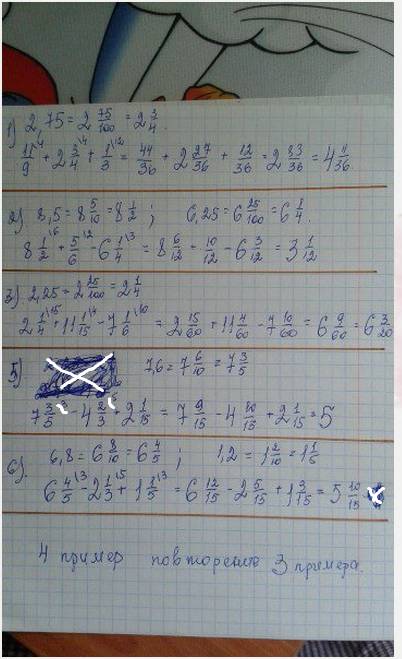 1) 2,75 = 2 75/100 = 2 3/4.
11/9 \4 + 2 3/4 \4 + 1/3 \12 = 44/36 + 2 27/36 + 12/36 = 2 83/36 = 4 11/36
2) 8,5 = 8 5/10 = 8 1/2 ; 6,25 = 6 25/100 = 6 1/4.
8 1/2 \6 + 5/6 \2 - 6 1/4 \3 = 8 6/12 - 10/12 - 6 3/12 = 3 1/12
3). 2,25 = 2 25/100 = 2 1/4
2 1/4 \15 + 11 1/15 \4 - 7 1/6 \10 = 2 15/60 + 11 4/60 - 7 10/60 = 6 9/60 = 6 3/20
5) 7,6 = 7 6/10 = 7 3/5
7 3/5 \3 - 4 2/3 \5 2 1/15 = 7 9/15 - 4 10/15 + 2 1/15 = 5
6). 6,8 = 6 8/10 = 6 4/5 ; 1,2 = 1 2/10 = 1 1/5
6 4/5 \3 - 2 1/3 \5 + 1 1/5 \3 = 6 12/15 - 2 5/15 + 1 3/15 = 5 10/15
4 пример повторение 3 примера.